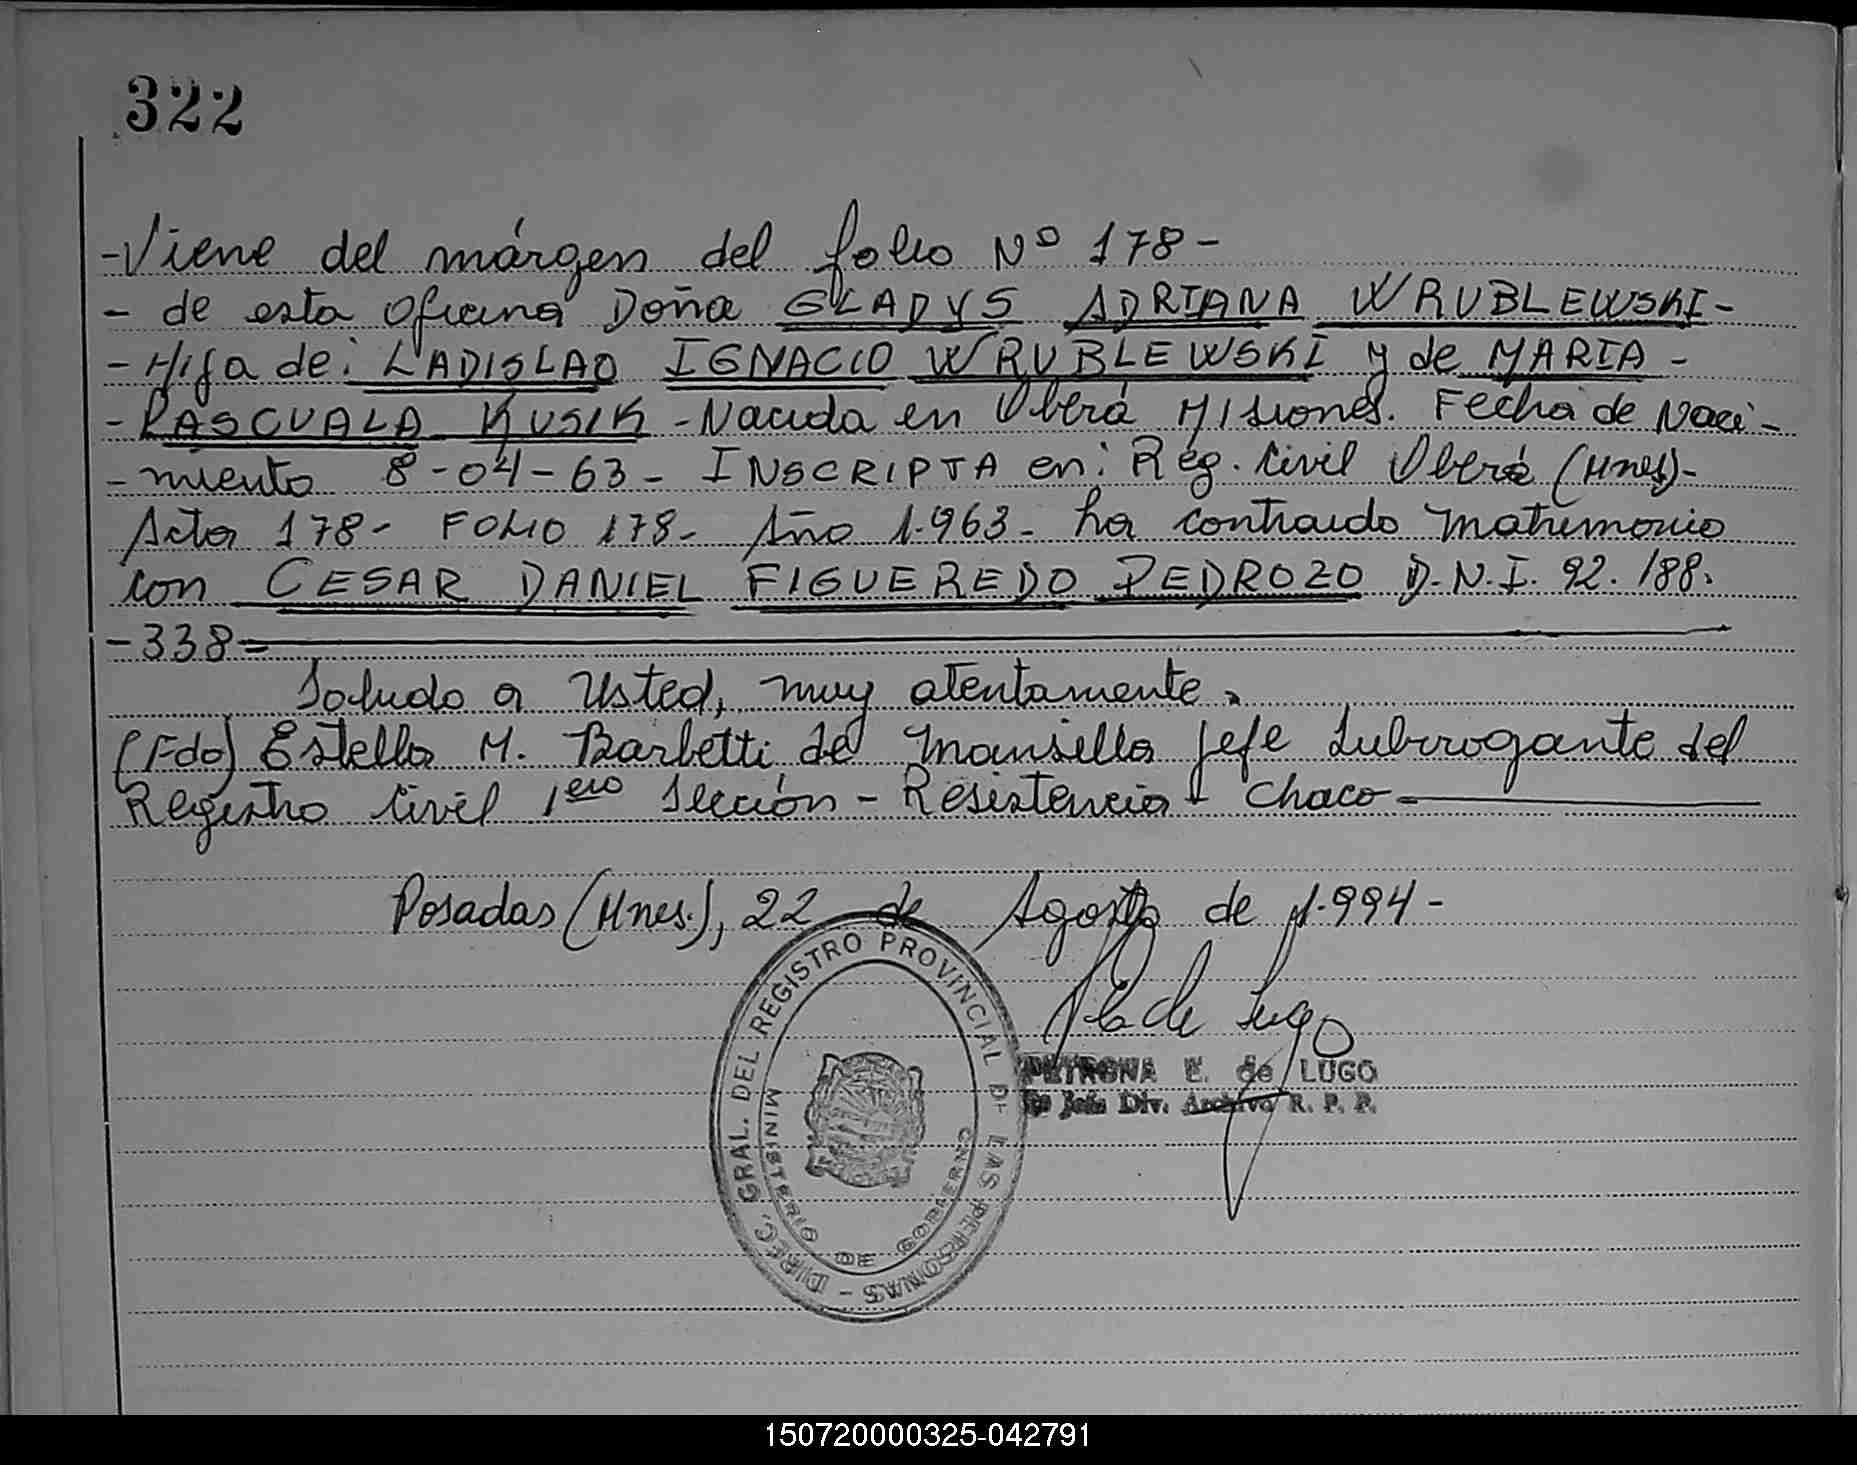 322
-Viene del márgen del folio Nº 178-
- de esta Oficina Doña GLADYS ADRIANA WRUBLEWSKI-
- Hija de: LADISLAO IGNACIO WRUBLEWSKI y de MARIA -
- PASCUALA KUSIK - Nacida en Oberá Misiones. Fecha de Naci-
- miento 8-04-63 - INSCRIPTA en: Reg. Civil Oberá (Mnes)-
Acta 178- FOLIO 178- Año 1.963- ha contraido matrimonio
con CESAR DANIEL FIGUEREDO PEDROZO D.N.I. 92.188.
-338=
Saludo a Usted, muy atentamente.
(Fdo) Estella M. Barbetti de Mansilla Jefe Subrrogante del
Registro Civil 1era Sección - Resistencia - Chaco-
Posadas (Mnes.), 22 de Agosto de 1.994-
de Lugo
PETRONA E. de LUGO
Jefe Div. Archivo R. P. P.
DIREC. GRAL. DEL REGISTRO PROVINCIAL DE LAS PERSONAS -
MINISTERIO DE GOBIERNO
150720000325-042791